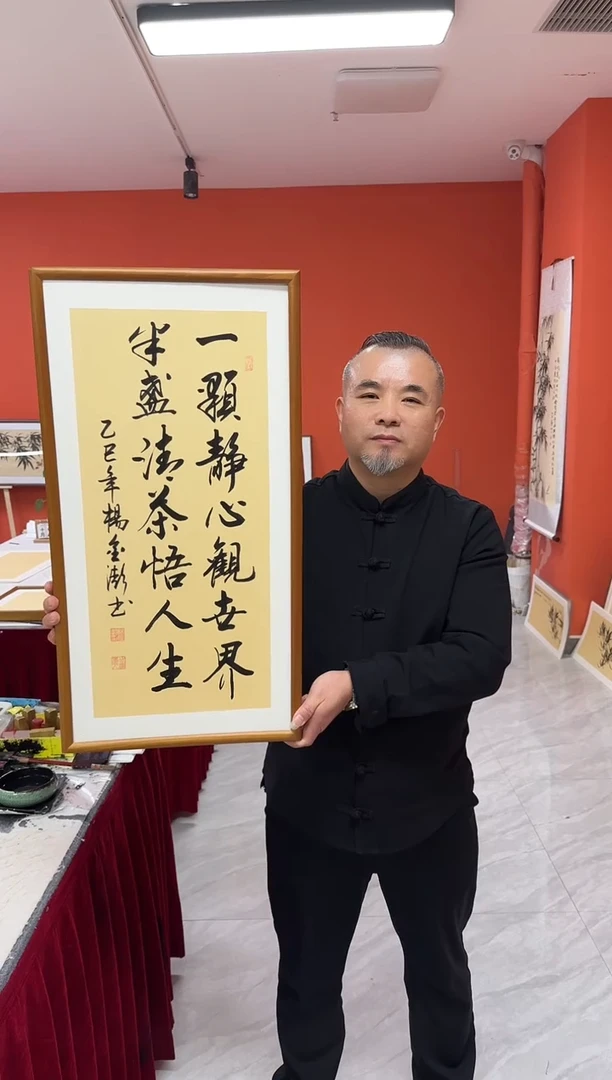 一顆静心觀世界
半盞清茶悟人生
乙巳年楊金澍书